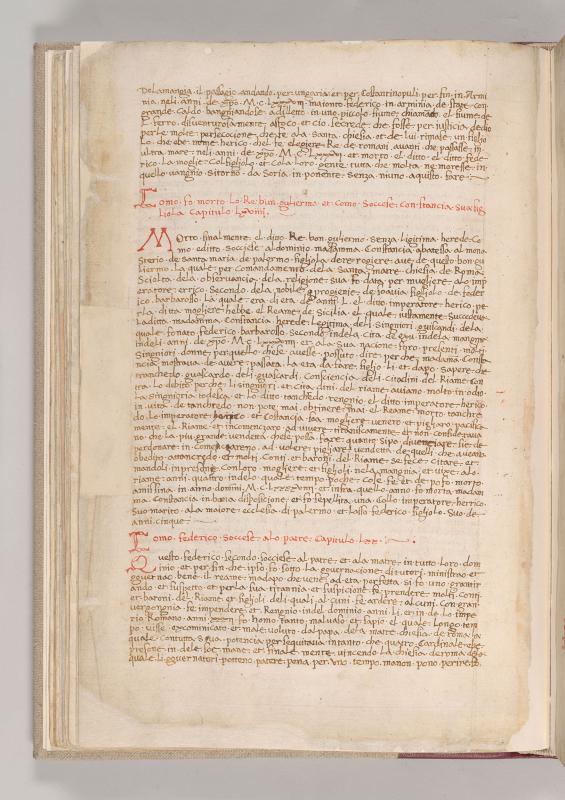 Delamangia. il passagio andando. per. ungaria. et per. Costantinopuli. per. fin. in. Armi
nia. neli. anni. de. xpo. M. C. Lxxx maionto. federico. in arminia. de state. con
grande. Caldo. bangniandose. adiletto. in uno. piccolo. fiume. chiamato. el. fiume. de
ferro. disventuratamente. affoco. et cio. se crede. che. fosse. per. iusticia. de dio
per le. molte. persecucione. che. fe. ala. santa. chiesia. et. de. lui. rimase. un figlio
Lo. che. ebe. nome. herico. chel. fe. elegiere. Re. de. romani. avanti. che. passasse. in
ultra. mare. neli. anni. de. xpo. M. C. et. morto. el. ditto. el. ditto. fede
rico. La moglie. Col figliolo. et. Cola. Loro. gente. tutta. che. molta. ne. moresse. in
quello. viangio. Sitorno. da. Soria. in. ponente. Senza. niuno. aquisto. fare.
Como. fo. morto. Lo. Re. bun. gulierma. et. como. Soccese. Constancia. sua fig
liola. Capitulo. Lxviiii.
Morto. finalmente. el. ditto. Re. bon. gulielmo. Senza. ligitima. herede. Co
mo. editto. Soccese. al dominio. madamma. Constancia. abatessa. al. mona
sterio. de. santa. maria. de. palermo. figliola. de re. rogiere. ave. de. questo. bon. gu
liermo. La quale. per. comandamento. dela. Santa. matre. chiesia. de. Roma.
Sciolta. dela. observancia. dela. religione. sua. fo. data. per. mugliere. alo. imp
eratore. errico. Secondo. dela. nobile. progienie. de. soavia. figliolo. de. feder
ico. barbarosso. La quale. era. di. eta. de. anni. L. el. ditto. imperatore. herico. pe
rla. ditta. mogliere. hebbe. el. Reame. de. Sicilia. el. quale. iustamente. Succedeva
Laditta. madamma. Constancia. herede. Legitima. deli. Singniori. guiscardi. dela
quale. fo nato. federico. barbarosso. Secondo. indela. Cita. de. indela. mangna
indeli. anni. de. xpo. M. C. et. ala. sua. natione. furo. presenti. molti
Singniori. donne. per quello. che se. avesse. possuto. dire. per che. madama. Consta
ncia. mostrava. de. avere. passata. La. eta. da. fare. figlioli. et. dapo. sapere. che
tranchedo. guascardo. deli. guascardi. Consciencia. deli. Citadini. del Riame. con
tra. Lo. debito. perche. Li. singniori. et. citadini. del. riame. aviano. molto. in odio
La singnioria. todesca. et. Lo. ditto. tanchedo. rengnio. el. ditto. imperatore. herico.
in. vita. de. tancredo. non. pote. mai. obtinere. mai. el. Reame. morto. tanchre
do. Lo. imperatore. herico. et. Costancia. sua. mogliere. venero. et. pigliaro. pacifica
mente. el. Riame. et. incomenzaro. ad vivere. titanicamente. et. non. considerava
no. che. la. piu. grande. vendetta. che se. possa. fare. quanto. si po. divengiare. si e. de
perdonare. in. Comenczareno. ad. volere. pigliare. vendetta. de. quelli. che. aveano
obedito. atancredo. et. molti. Conti. et. baroni. del. Riame. se fece. Citare. et.
mandoli. in presione. Con Loro. mogliere. et figlioli. nela. mangnia. et. vixe. alo.
riame. anni. quatro. indelo. quale. tempo. poche. cose. fe. et. de pa fo. morto.
amissina. in anno. domini. M. C. L et. infra. quello. anno. fo. morta. madam
ma. Constancia. in bona. disposicione. et. fo. sepellita. una. colo. imperatore. herrico.
Suo. marito. ala maiore. ecclesia. di. palermo. et. Lasso. federico. figliolo. Suo. de
anni. cinque.
Como. federico. Soccese. alo. patre. Capitulo. Lxx.
Questo. federico. secondo. socciese. al. patre. et. ala matre. in. tutto. Loro. dom
inio. et. per. fin. che. ipso. fo. sotto. La. governacione. di. tutori. ministrao. et
governao. bene. il. reame. madapo. che. vene. ad eta. perfetta. si. fo. uno. gran. tir
ando. et. suspetto. et. per. la. sua. titannia. et. suspicione. fe. prendere. molti. Conti
et. baroni. del. Riame. et. figlioli. deli. quali. alcuni. fe. ardere. alcuni. Con. gran
vergongnia. fe. impendere. et. Rengnio. indel. dominio. anni. Li. et. in. de. Lo. impe
rio. Romano. anni. xxxii. fo. homo. tanto. malvaso. et. sapio. el. quale. Longo. tem
po. visse. excomunicato. et. male. voluto. da. papa. dela. matre. chiesia. de. roma. la
quale. con tutta. Sua. potencia. per sequitava. intanto. che. quatro. Cardinale. ebe
presone. in. dele. soe. mane. et. finale mente. vincendo. La. chiesia. de roma. delo
quale. Li. governatori. potteno. patere. pena. per. uno. tempo. manon. pono. perire. Et